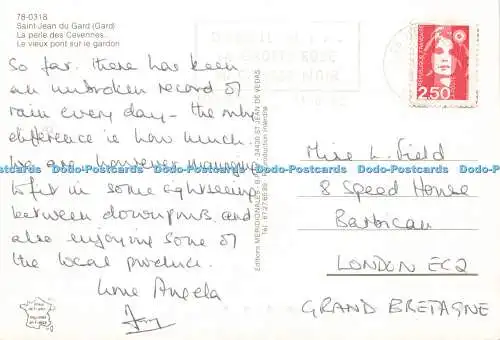 78-0318
Saint-Jean du Gard (Gard)
La perle des Cevennes..
Le vieux pont sur le gardon
So far there has been
an unbroken record of
rain every day - the only
difference is how much.
We are however managing
to fit in some sightseeing
between downpours and
also enjoying some of
the local produce.
Love Angela
Editions MERIDIONALES - 34430 ST JEAN DE VEDAS
Tél. 67.27.60.89 Reproduction interdite
RÉPUBLIQUE FRANÇAISE
LA POSTE
2,50
Miss L. Field
8 Speed House
Barbican
LONDON EC2
GRAND BRETAGNE
Dodo-Postcards Dodo-Postcards Dodo-Postcards Dodo-Postcards